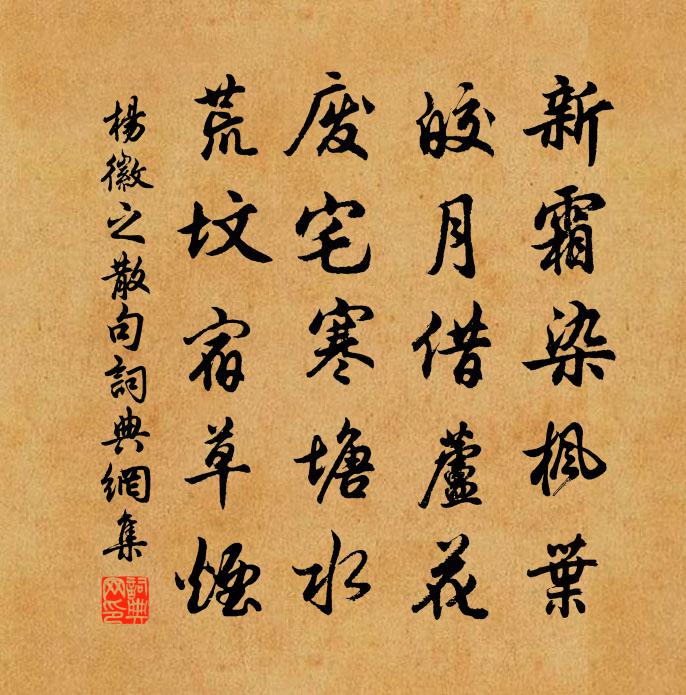 新霜染枫葉
皎月借蘆花
废宅寒塘水
荒坟宿草煙
楊徽之散句詞典網集
詞典網印